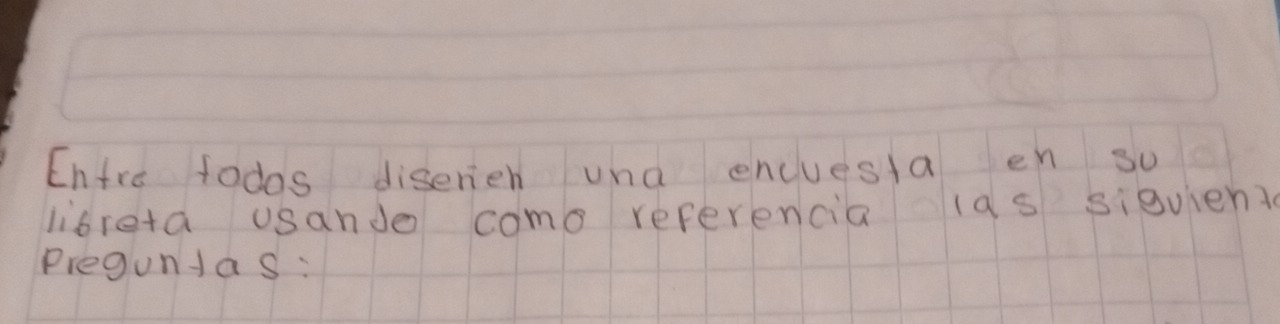 Entre todos diseñen una encuesta en su
libreta usando como referencia las siguiente
preguntas: